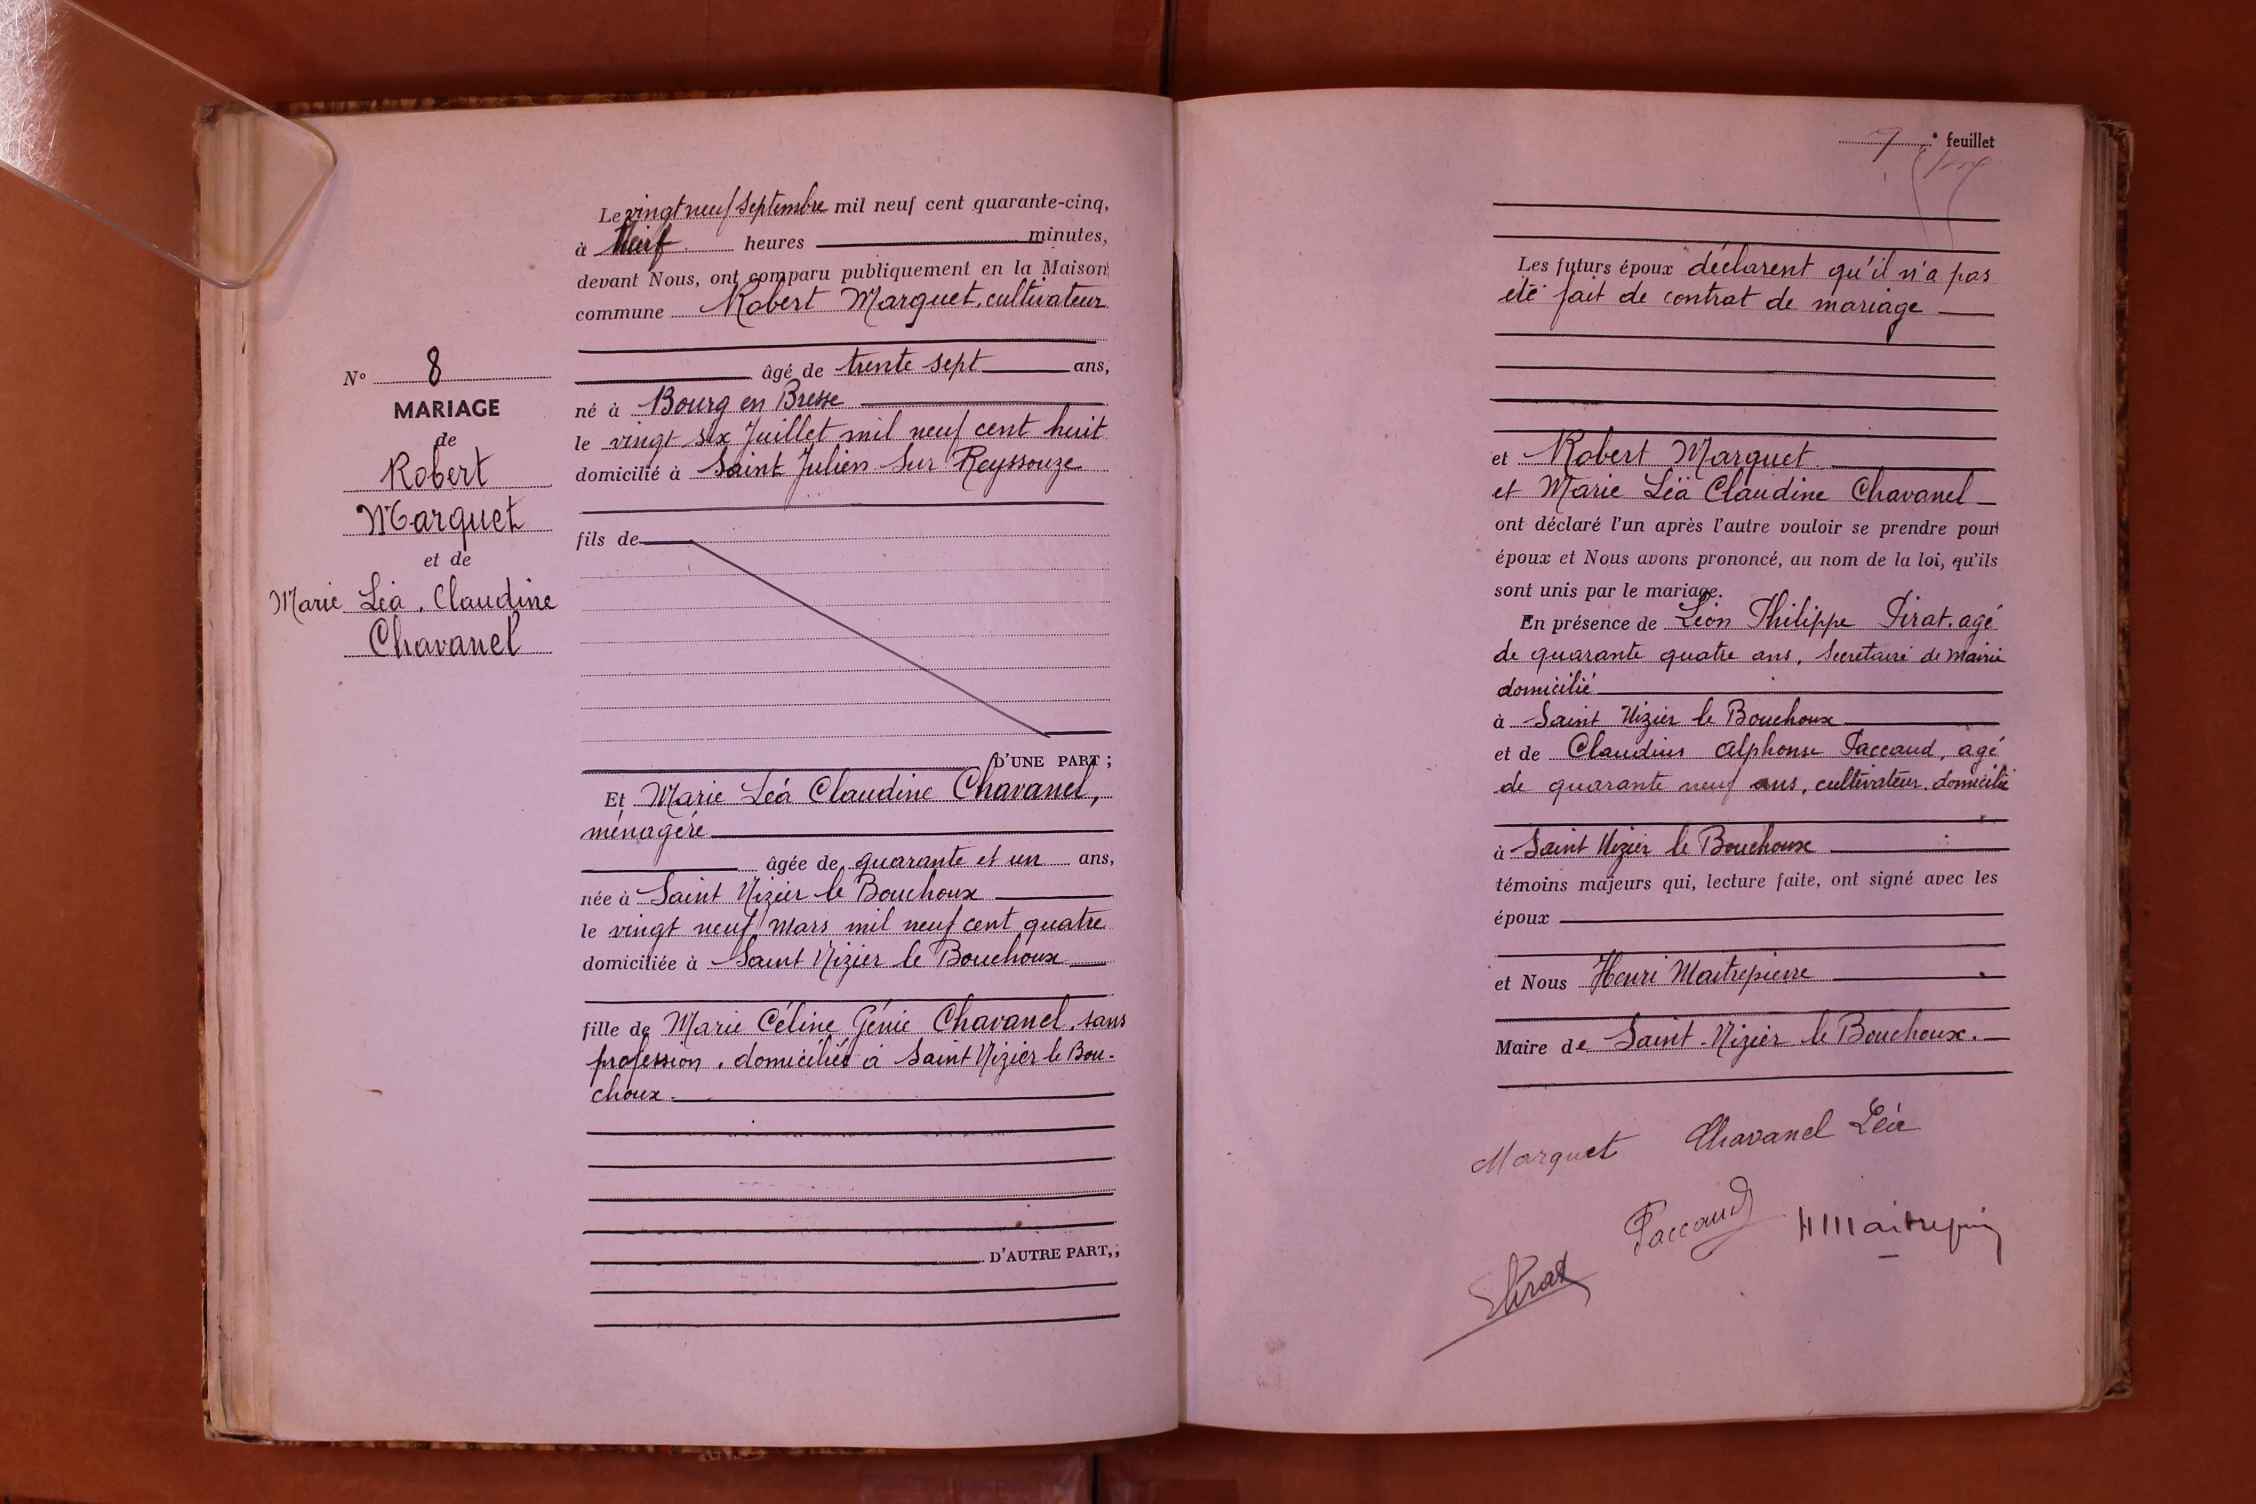 Le vingt neuf Septembre mil neuf cent quarante-cinq,
à Neuf heures minutes,
devant Nous, ont comparu publiquement en la Maison
commune Robert Marguet, cultivateur
âgé de trente sept ans,
né à Bourg en Bresse
le vingt six Juillet mil neuf cent huit
domicilié à Saint Julien Sur Reyssouze
fils de
D'UNE PART ;
N° 8
MARIAGE
de
Robert
Marguet
et de
Marie Léa. Claudine
Chavanel
Et Marie Léa Claudine Chavanel,
ménagère
âgée de quarante et un ans,
née à Saint Nizier le Bouchoux
le vingt neuf Mars mil neuf cent quatre
domiciliée à Saint Nizier le Bouchoux
fille de Marie Céline Génie Chavanel, sans
profession, domiciliée à Saint Nizier le Bou-
choux.
D'AUTRE PART,;
7e feuillet
Les futurs époux déclarent qu'il n'a pas
été fait de contrat de mariage
et Robert Marguet
et Marie Léa Claudine Chavanel
ont déclaré l'un après l'autre vouloir se prendre pour
époux et Nous avons prononcé, au nom de la loi, qu'ils
sont unis par le mariage.
En présence de Léon Philippe Pirat, agé
de quarante quatre ans, Secrétaire de Mairie
domicilié
à Saint Nizier le Bouchoux
et de Claudius Alphonse Paccaud, agé
de quarante neuf ans, cultivateur, domicilié
à Saint Nizier le Bouchoux
témoins majeurs qui, lecture faite, ont signé avec les
époux
et Nous Henri Maitrepierre
Maire de Saint-Nizier le Bouchoux.
Marguet Chavanel Léa
Paccaud HMaitrepierre
Pirat